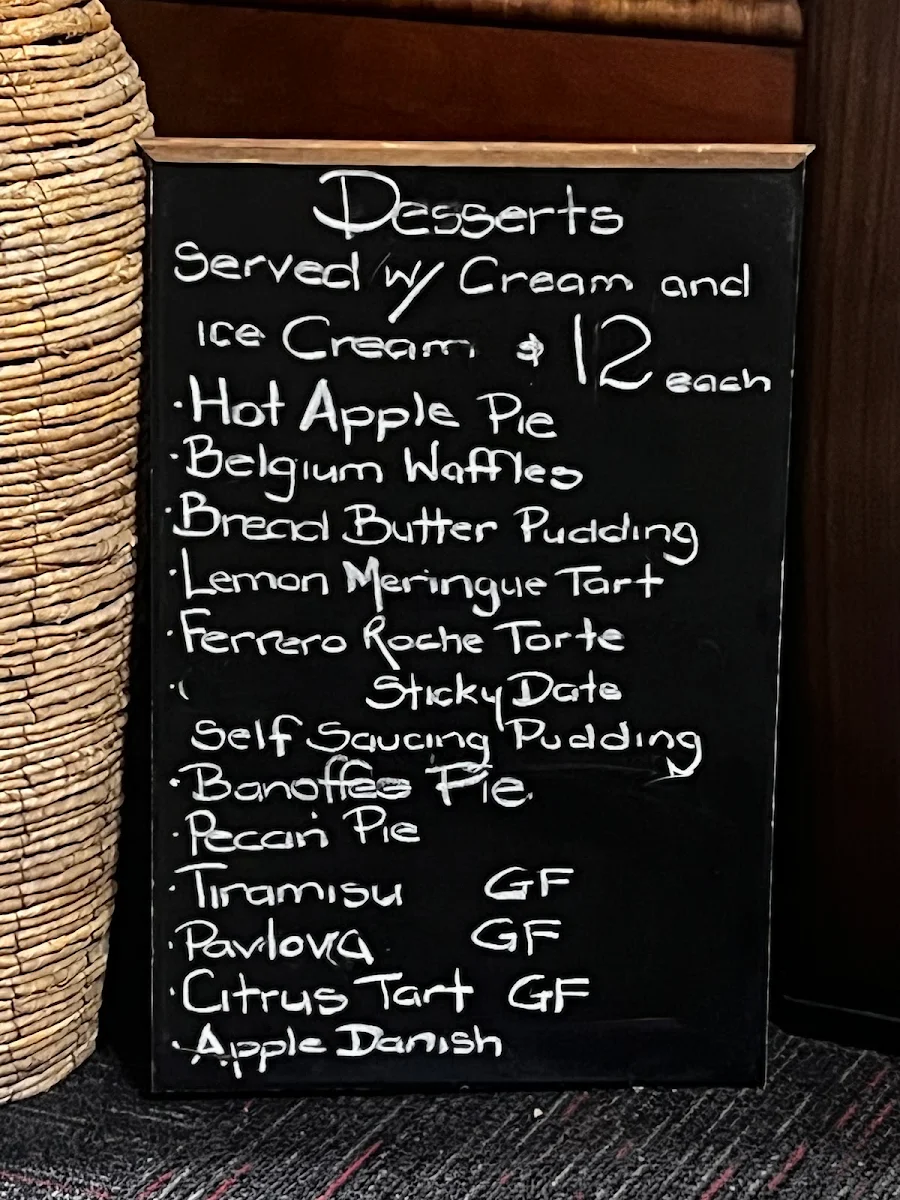 Desserts
Served w/ Cream and
ice Cream $12 each
·Hot Apple Pie
·Belgium Waffles
·Bread Butter Pudding
·Lemon Meringue Tart
·Ferrero Roche Torte
· Sticky Date
Self Saucing Pudding
·Banoffee Pie.
·Pecan Pie
·Tiramisu GF
·Pavlova GF
·Citrus Tart GF
·Apple Danish